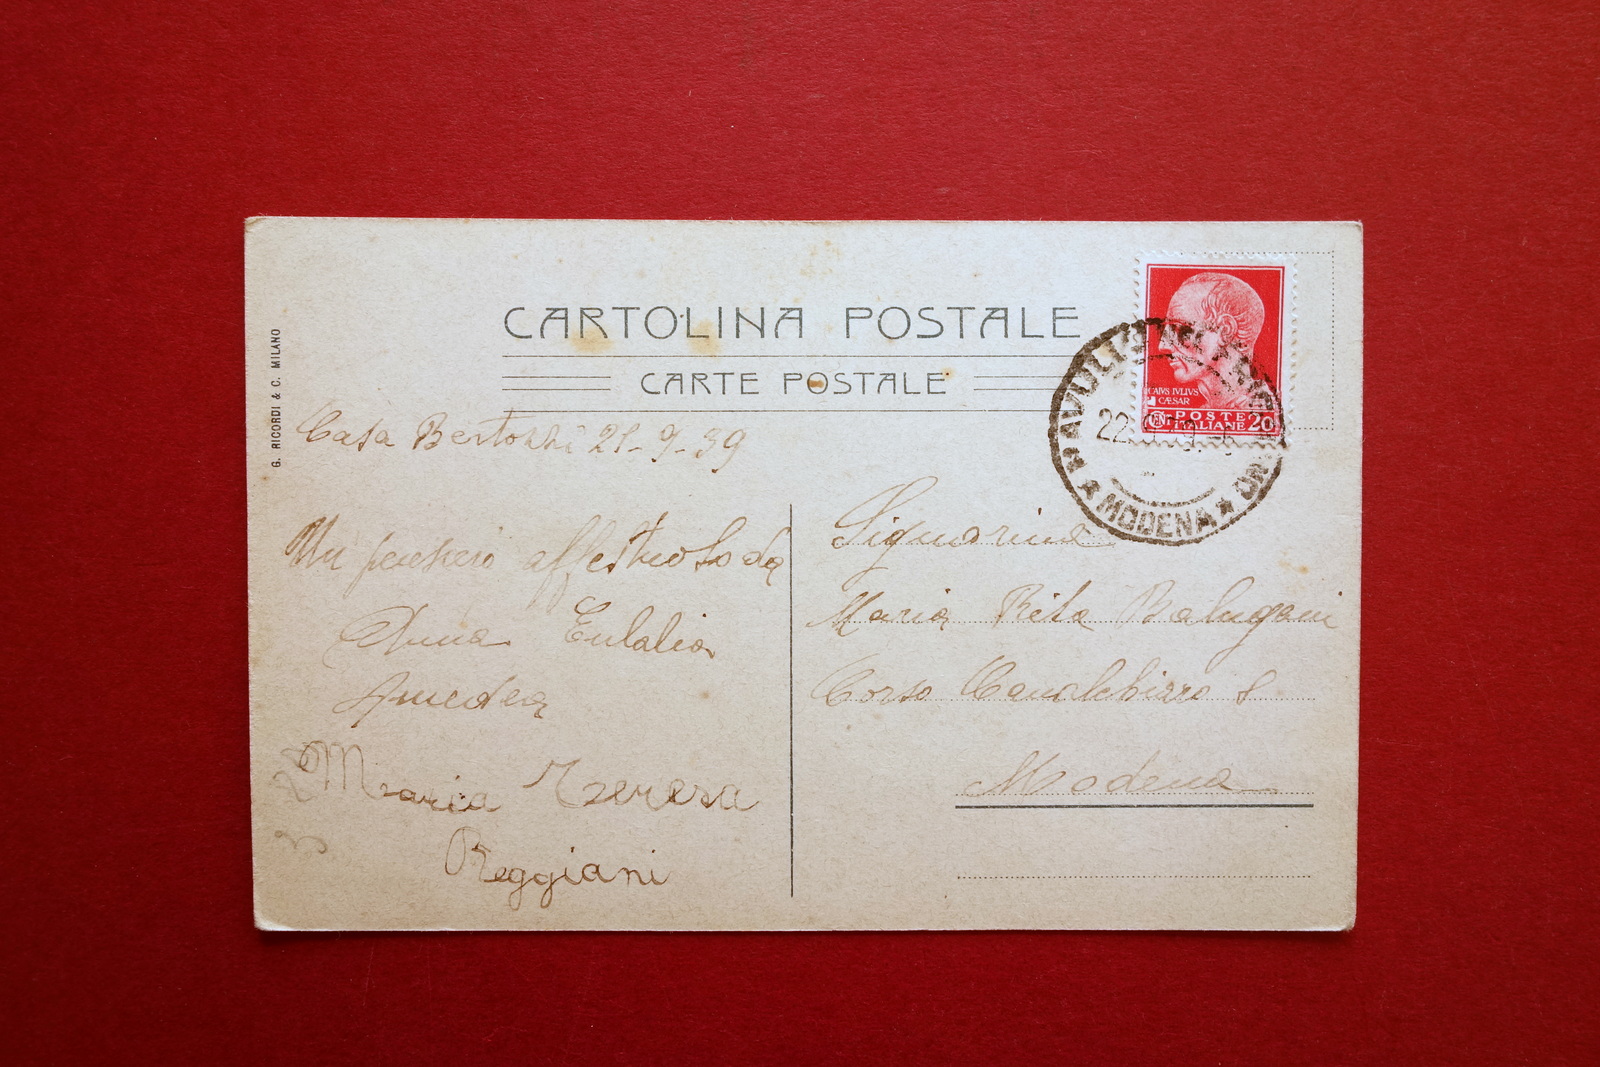 CARTOLINA POSTALE
CARTE POSTALE
G. RICORDI & C. MILANO
CAIVS IVLIVS
CÆSAR
CENT. POSTE ITALIANE 20
PAVULLO NEL FRIGNANO
22
★ MODENA ★
Casa Bertozzi 21-9-39
Un pensiero affettuoso da
Anna Eulalia
Amedea
Maria Teresa
Reggiani
Signorina
Maria Rita Balugani
Corso Cavalchirro 8
Modena